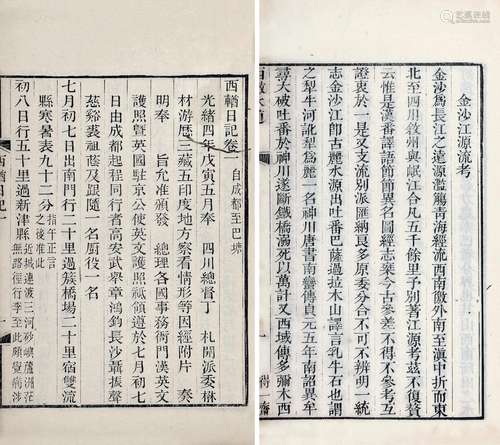 金沙江源流考
金沙爲長江之遠源濫觴靑海經流西南徼外南至滇中折而東
北至四川敘州與岷江合凡五千餘里予別著江源考茲不復贅
云惟是漢番譯語節節異名圖經志乘今古參差不得不參考互
證衷於一是又支流別派匯納良多原委分合不可不辨明一統
志金沙江卽古麗水源出吐番巴薩過拉木山譯言乳牛石也謂
之犁牛河訛犁爲麗一名神川唐書南蠻傳貞元五年南詔異牟
尋大破吐番於神川遂斷鐵橋溺死以萬計又西域傳多彌木西
西輶日記卷一 自成都至巴塘
光緒四年戊寅五月奉 四川督丁 札開派委楙
材游歷三藏五印度地方察看情形等因經附片 奏
明奉 旨允准頒發 總理各國事務衙門漢英文
護照曁英國駐京公使英文護照祗領遵於七月初七
日由成都起程同行者高安武擧章鴻鈞長沙聶振聲
慈谿裘祖蔭及跟隨一名廚役一名
七月初七日出南門行二十里過簇橋場二十里宿雙流
縣寒暑表九十二分 指午正言之後准此
初八日行五十里過新津縣 近城連渡三河砂嶼蘆洲茫無路徑行李至此頗覺病涉
西輶日記